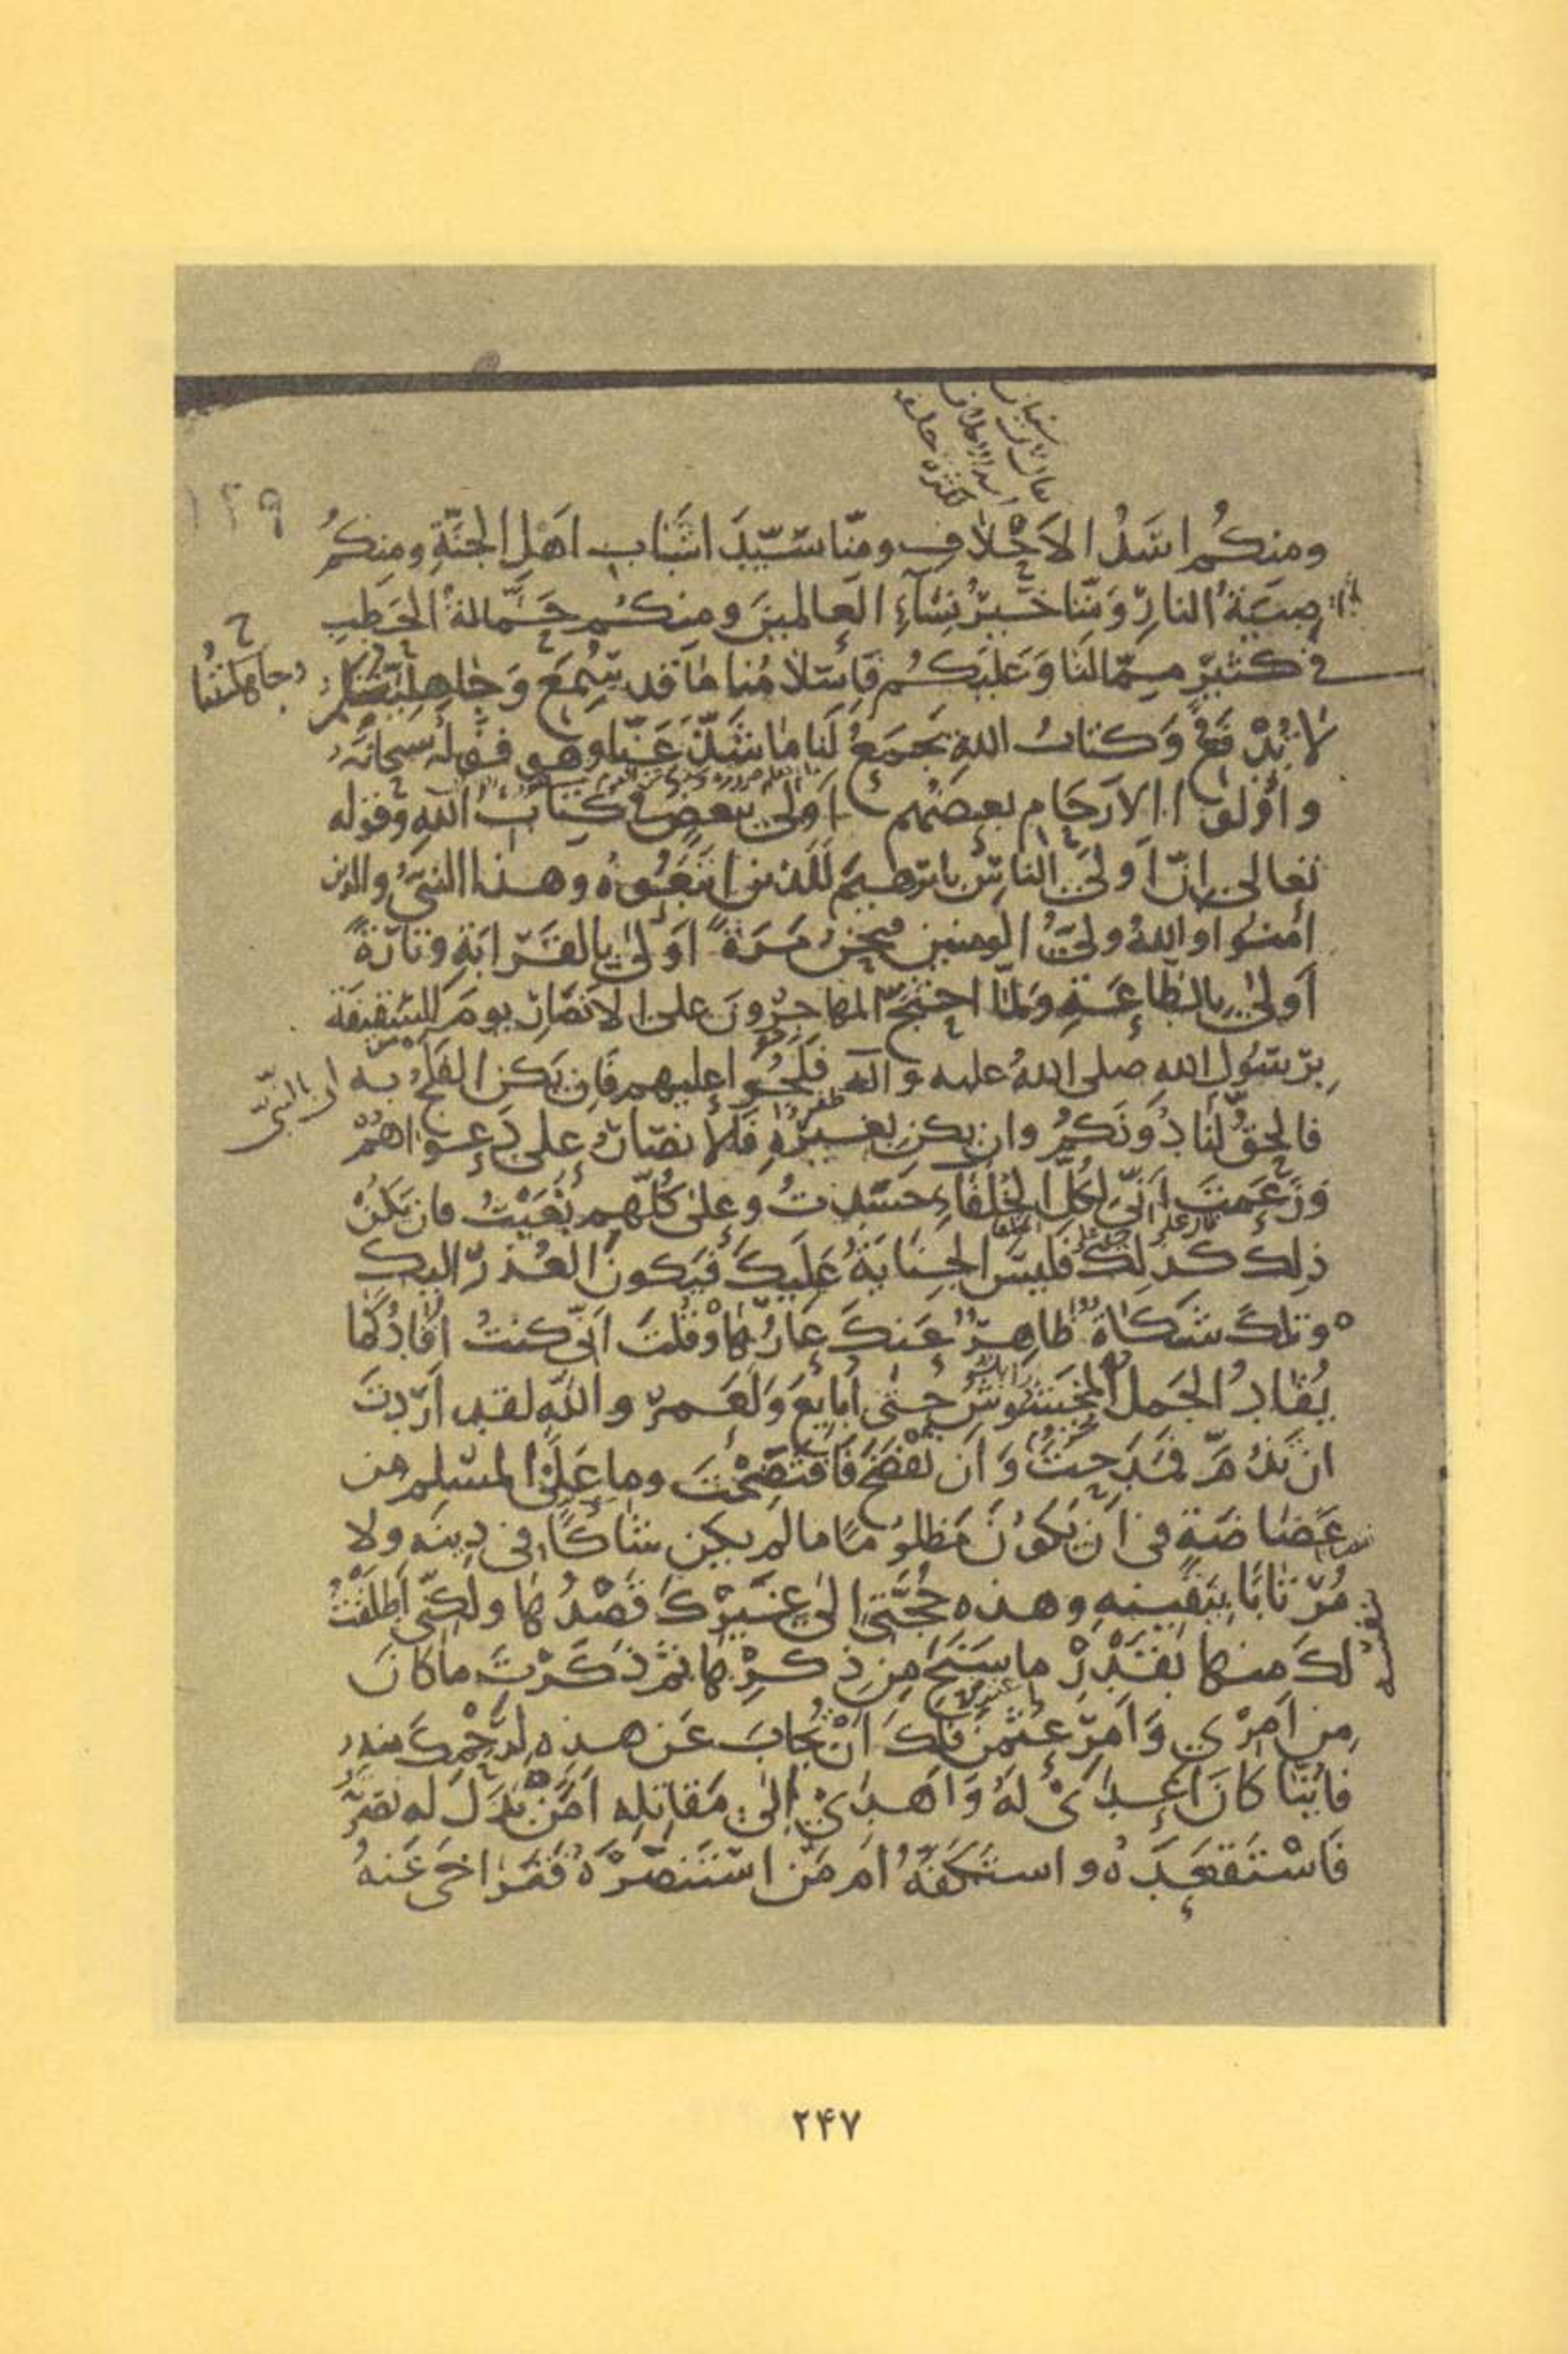 ١٢٩
ومنكم اسَدُ الاَحْلافِ ومنّا سَيّدَا شَبابِ اَهْلِ الجنّةِ ومنكُم
صِبيَةُ النارِ وَمِنّا خَيرُ نِسَآءِ العالمينَ ومنكُم حَمّالةُ الحَطَبِ
فى كثيرٍ مِمّا لنَا وَعَليكُم فَاِسْلامُنا مَا قد سُمِعَ وَجَاهِليّتُكم
وجاهليّتُنا
لا تُدْفَعُ وَكتابُ اللهِ يَجمَعُ لَنا مَا شَذّ عَنّا وهو قوله سبحانَه
واُولُوا الاَرحَامِ بعضُهُم اَولى ببعضٍ فى كِتابِ اللهِ وقوله
تعالى اِنّ اَولَى الناسِ بابرهيمَ لَلّذين اتَّبَعُوهُ وهذا النبىُّ والذين
اٰمنُوا واللهُ ولىُّ المومنين فنَحنُ مَرّةً اَولىٰ بِالقَرابَةِ وتارَةً
اَولىٰ بِالطّاعَةِ وَلمّا احتَجّ المهاجِرُونَ على الاَنصَارِ يومَ السّقيفَة
بِرَسُولِ اللهِ صلى اللهُ عليه وآله فَلَجُوا عليهم فَاِن يَكنِ الفَلَجُ به
اى بالنبىّ
فالحقُّ لَنا دُونَكُمُ وان يكن بغَيرِهِ فَالاَنصَارُ على دَعوَاهُمْ
وَزَعَمتَ اَنّى لِكُلِّ الخُلَفَاءِ حَسَدتُ وعلىٰ كُلّهم بَغَيْتُ فان يَكُنْ
ذلِكَ كذلِكَ فَليسَ الجِنايَةُ عَلَيكَ فيَكونَ العُذرُ اليكَ
وتلكَ شَكَاةٌ ظاهِرٌ عَنكَ عَارُهَا وَقُلتَ اَنّى كنتُ اُقادُ كَمَا
يُقادُ الجَملُ المخشوشُ حتىٰ اُبايعَ وَلَعَمرُ واللهِ لقد اَرَدتَ
ان تَذُمّ فمَدَحتَ وَاَن تَفضَحَ فَافتَضَحْتَ وما عَلَى المسلِم من
غَضَاضَةٍ فى اَن يَكُونَ مَظلُومًا مَا لم يكن شَاكًّا فى دِينه ولا
مُرتابًا بِيَقينِهِ وهذه حُجَّتى الىٰ غَيرِكَ قَصْدُها ولكِنّى اَطلَقْتُ
لكَ منها بقَدْرِ ما سَنَحَ مِن ذِكرِهَا ثم ذَكَرْتَ ما كانَ
مِن اَمرْى وَاَمرِ عثمٰنَ فَلكَ اَنْ تُجابَ عَن هذِهِ لِرَحِمِكَ منه
فاَيّنا كانَ اَعدٰى لَهُ وَاَهدىٰ اِلىٰ مَقاتِلِه اَمَن بَذَلَ له نصْرَتَهُ
فَاسْتَقعَدَهُ واستَكَفَّهُ ام مَن استَنصَرَهُ فَتَراخىٰ عَنهُ
۲۴۷